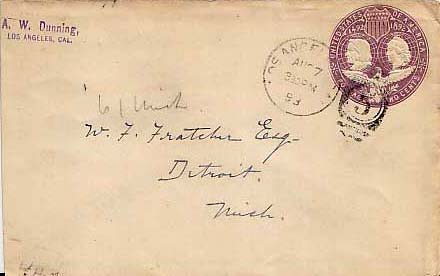 A. W. Dunning,
LOS ANGELES, CAL.
UNITED STATES OF AMERICA
1492 1892
TWO CENTS
LOS ANGELES
AUG 7
330PM
93
Mich.
W. F. Fratcher Esq-
Detroit.
Mich.